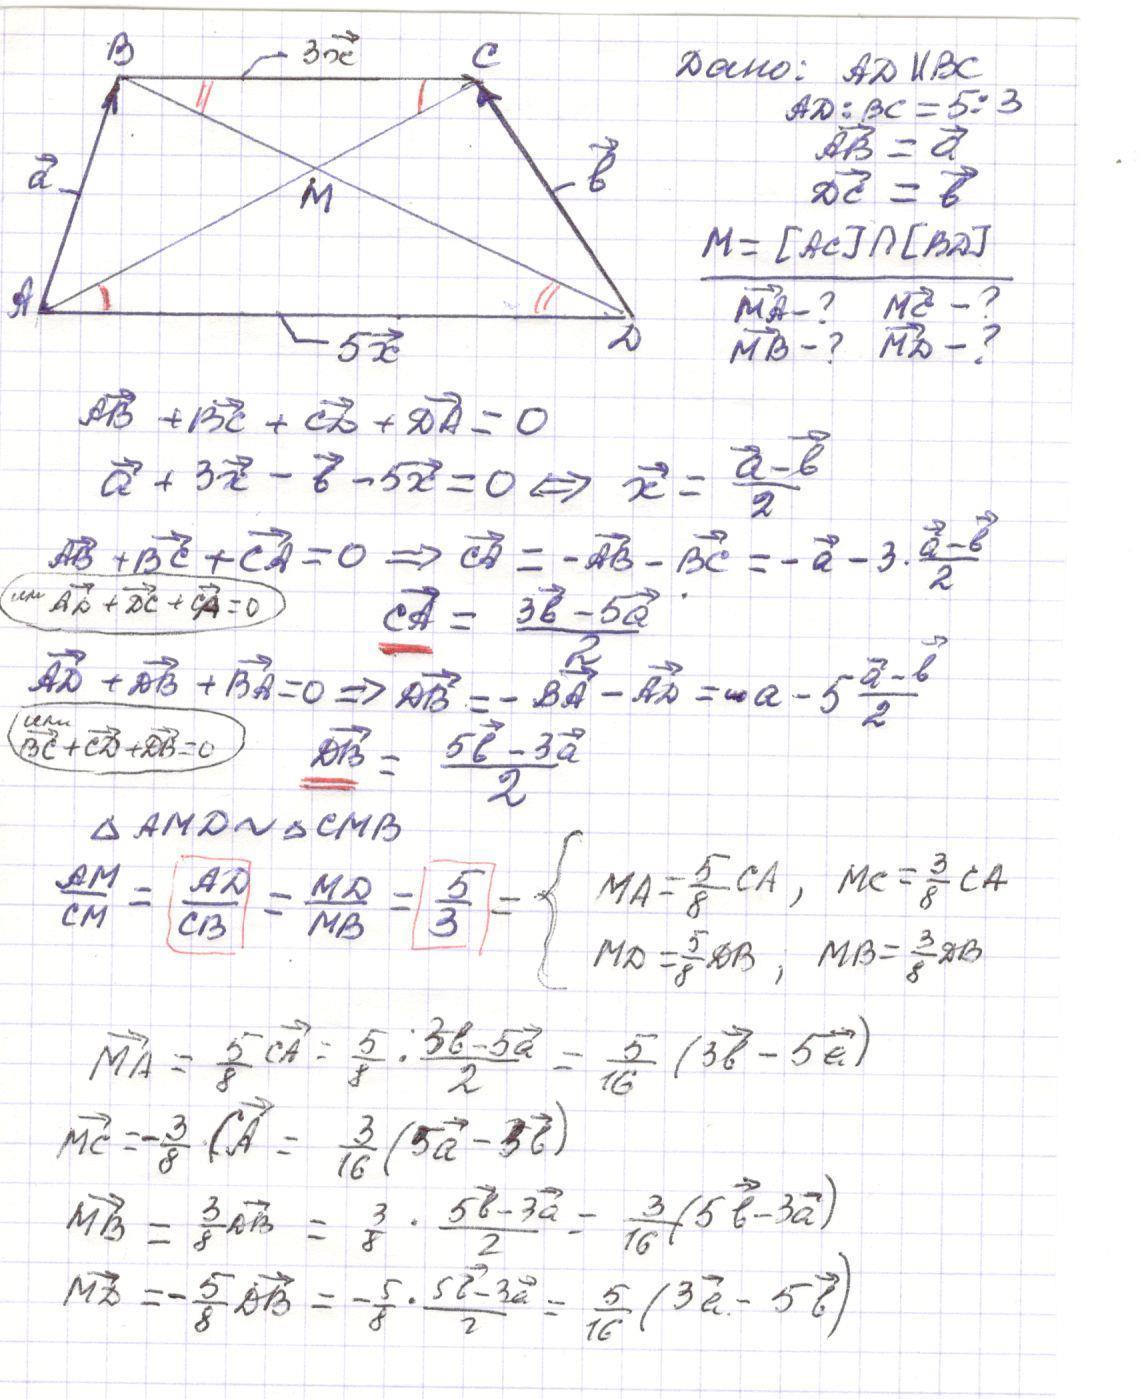 B 3x⃗ C
a⃗ M b⃗
A 5x⃗ D
Дано: AD ∥ BC
AD : BC = 5 : 3
AB⃗ = a⃗
DC⃗ = b⃗
M = [AC] ∩ [BD]
MA⃗ - ? MC⃗ - ?
MB⃗ - ? MD⃗ - ?
AB⃗ + BC⃗ + CD⃗ + DA⃗ = 0
a⃗ + 3x⃗ - b⃗ - 5x⃗ = 0 ⇔ x⃗ = (a⃗ - b⃗)/2
AB⃗ + BC⃗ + CA⃗ = 0 ⇒ CA⃗ = -AB⃗ - BC⃗ = -a⃗ - 3 · (a⃗ - b⃗)/2
или AD⃗ + DC⃗ + CA⃗ = 0
CA⃗ = (3b⃗ - 5a⃗)/2
AD⃗ + DB⃗ + BA⃗ = 0 ⇒ DB⃗ = - BA⃗ - AD⃗ = a - 5 (a⃗ - b⃗)/2
или
BC⃗ + CD⃗ + DB⃗ = 0
DB⃗ = (5b⃗ - 3a⃗)/2
△ AMD ~ △ CMB
AM/CM = AD/CB = MD/MB = 5/3 = { MA = 5/8 CA, MC = 3/8 CA
MD = 5/8 DB; MB = 3/8 DB
MA⃗ = 5/8 CA⃗ = 5/8 · (3b⃗ - 5a⃗)/2 = 5/16 (3b⃗ - 5a⃗)
MC⃗ = -3/8 · CA⃗ = 3/16 (5a⃗ - 3b⃗)
MB⃗ = 3/8 DB⃗ = 3/8 · (5b⃗ - 3a⃗)/2 = 3/16 (5b⃗ - 3a⃗)
MD⃗ = -5/8 DB⃗ = -5/8 · (5b⃗ - 3a⃗)/2 = 5/16 (3a⃗ - 5b⃗)